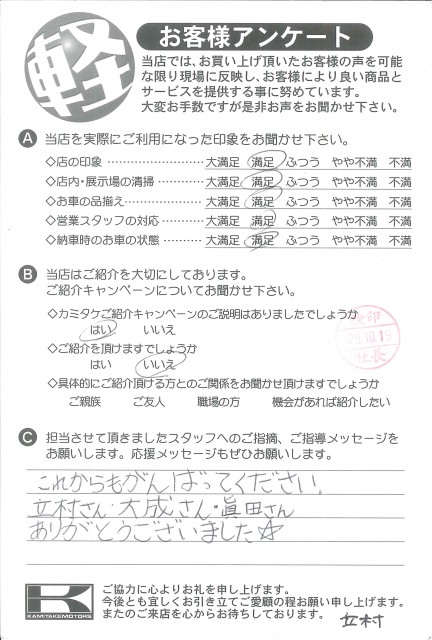 軽
お客様アンケート
当店では、お買い上げ頂いたお客様の声を可能
な限り現場に反映し、お客様により良い商品と
サービスを提供する事に努めています。
大変お手数ですが是非お声をお聞かせ下さい。
A 当店を実際にご利用になった印象をお聞かせ下さい。
◇店の印象 ………………… 大満足 満足 ふつう やや不満 不満
◇店内・展示場の清掃 ………… 大満足 満足 ふつう やや不満 不満
◇お車の品揃え ……………… 大満足 満足 ふつう やや不満 不満
◇営業スタッフの対応 ………… 大満足 満足 ふつう やや不満 不満
◇納車時のお車の状態 ………… 大満足 満足 ふつう やや不満 不満
B 当店はご紹介を大切にしてあります。
ご紹介キャンペーンについてお聞かせ下さい。
◇カミタケご紹介キャンペーンのご説明はありましたでしょうか
はい いいえ
◇ご紹介を頂けますでしょうか
はい いいえ
◇具体的にご紹介頂ける方とのご関係をお聞かせ頂けますでしょうか
ご親族 ご友人 職場の方 機会があれば紹介したい
検印
29.10.15
社長
C 担当させて頂きましたスタッフへのご指摘、ご指導メッセージを
お願いします。応援メッセージもぜひお願いします。
これからもがんばってください!
立村さん・大成さん・眞田さん
ありがとうございました☆
K
KAMITAKEMOTORS
ご協力に心よりお礼を申し上げます。
今後とも宜しくお引き立てご愛顧の程お願い申し上げます。
またのご来店を心からお待ちしております。
立村